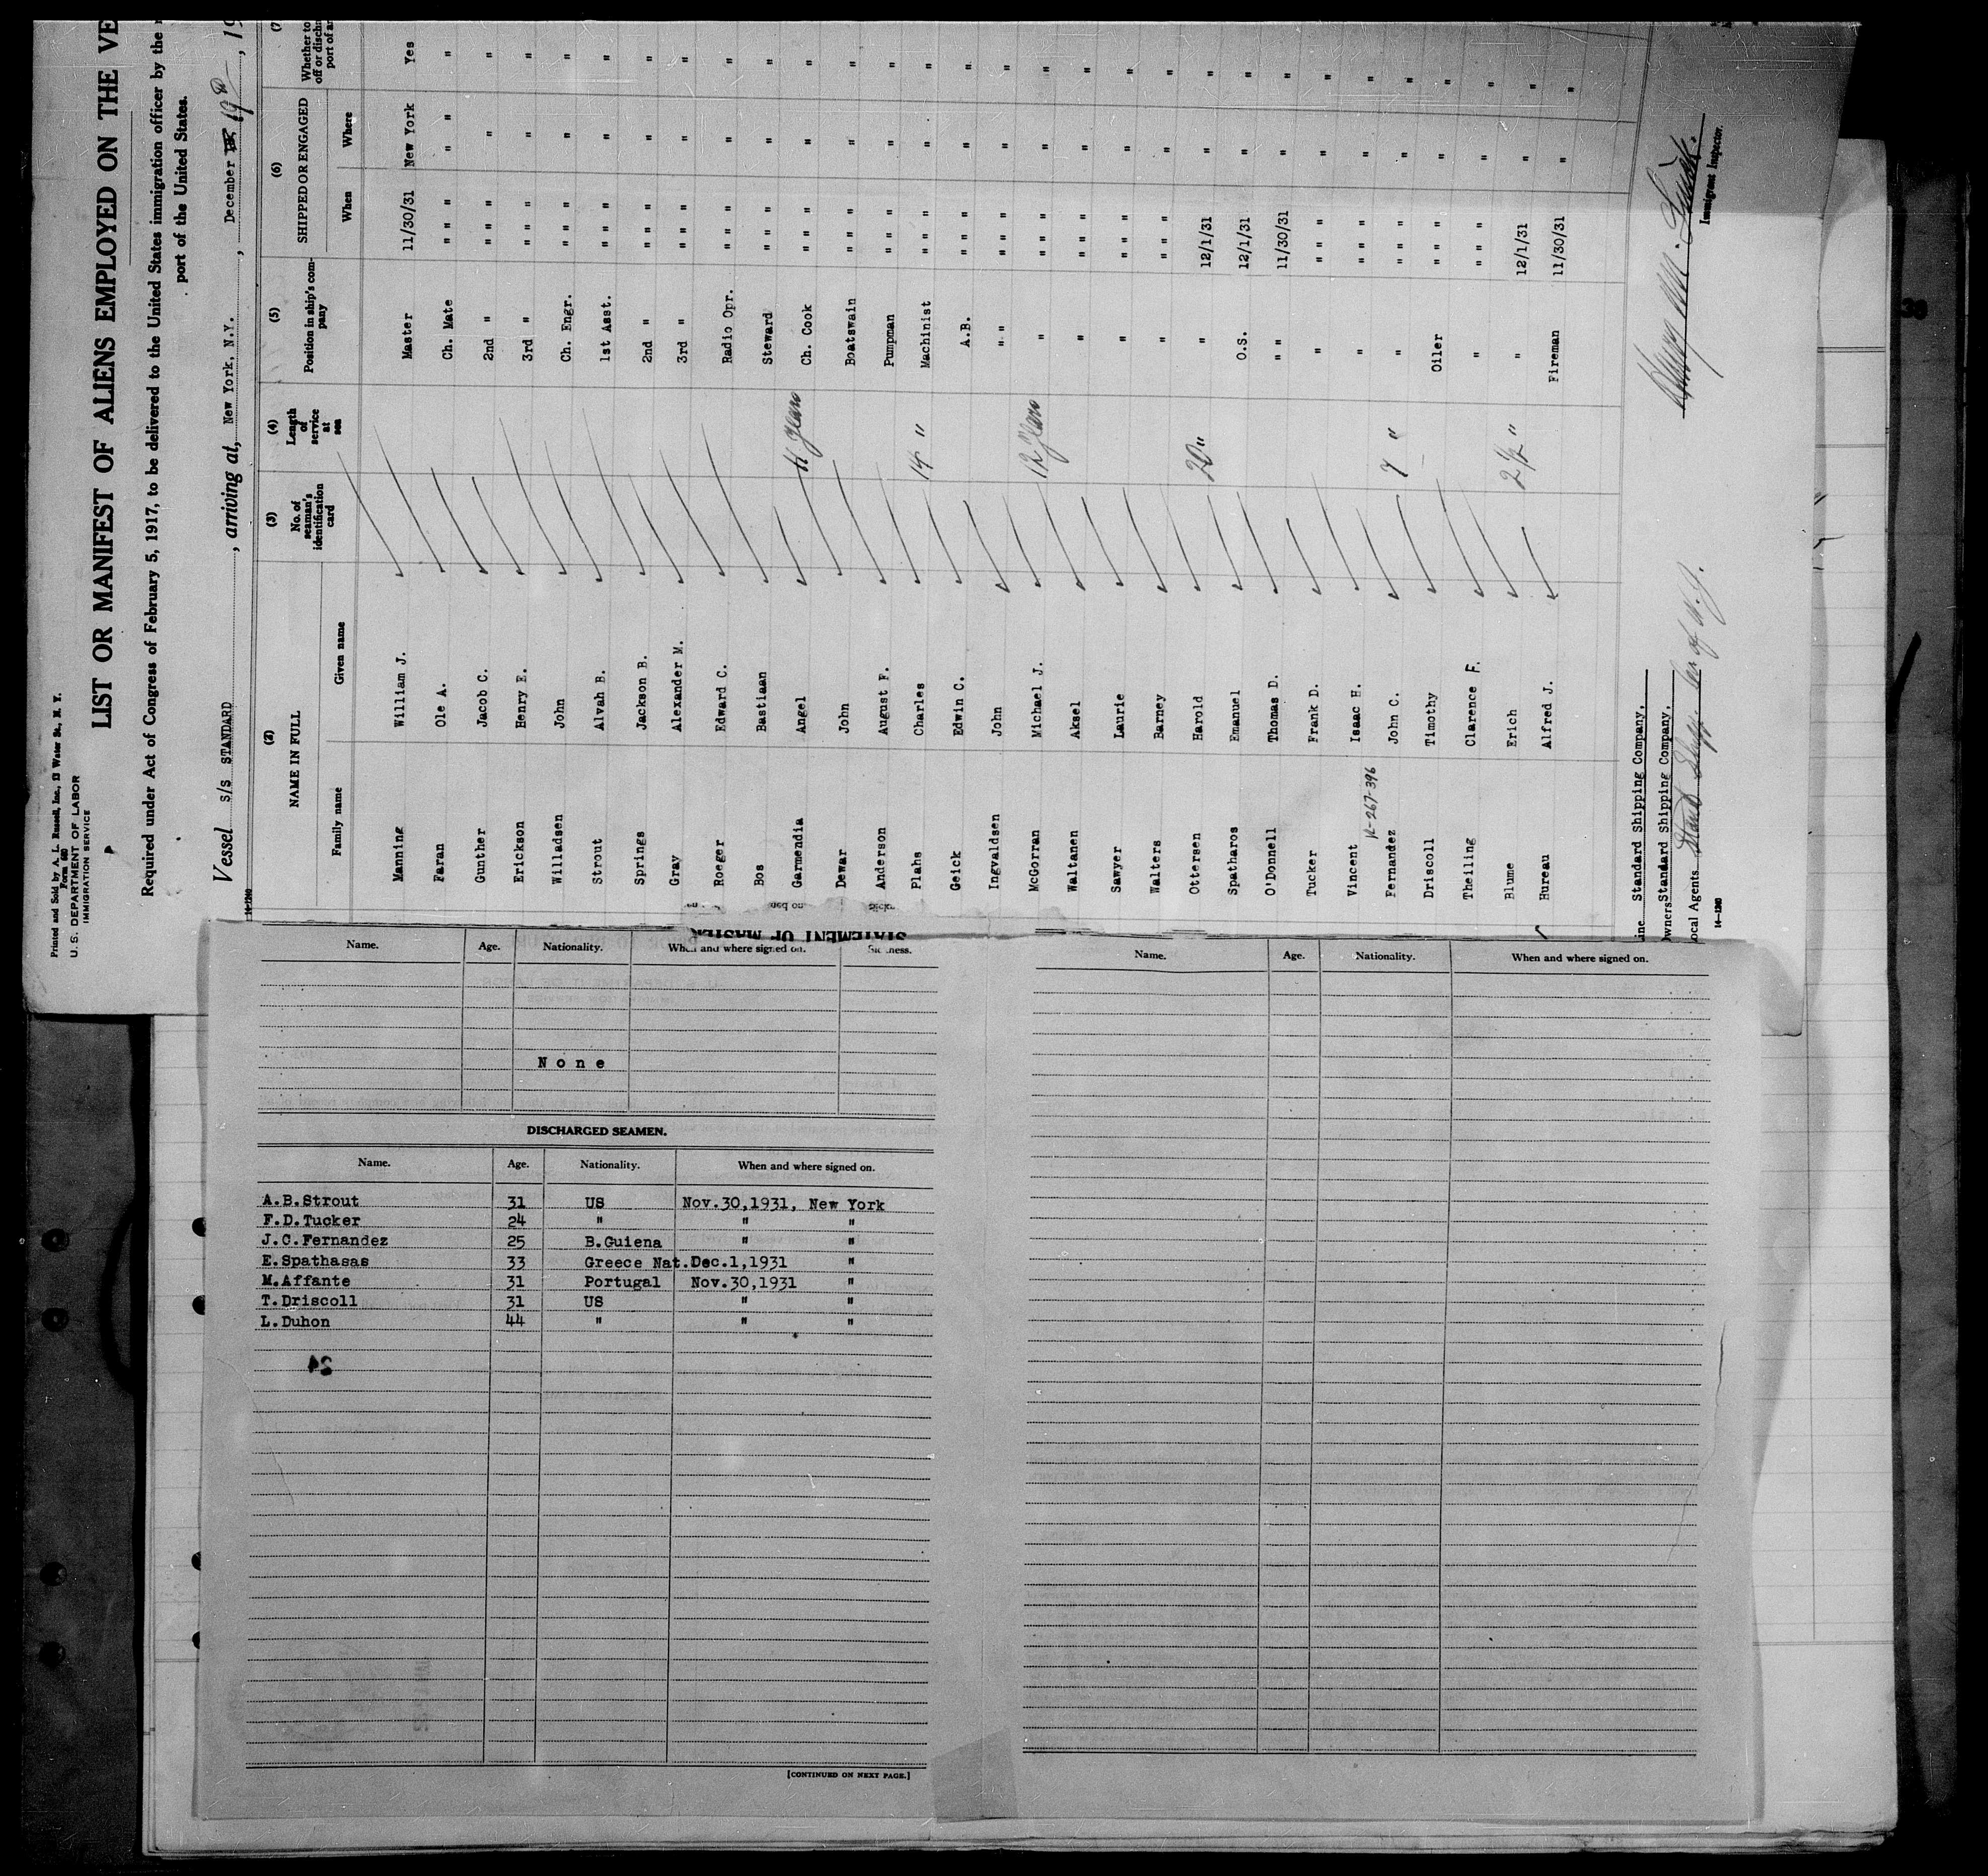 Printed and Sold by A. L. Russell, Inc., 13 Water St., N. Y.
Form 680
U. S. DEPARTMENT OF LABOR
IMMIGRATION SERVICE
LIST OR MANIFEST OF ALIENS EMPLOYED ON THE VE
Required under Act of Congress of February 5, 1917, to be delivered to the United States immigration officer by the
port of the United States.
Vessel S/S STANDARD, arriving at, New York, N.Y., December 19, 19
14-1240
(2) (3) (4) (5) (6) (7
NAME IN FULL No. of seaman's identification card Length of service at sea Position in ship's company SHIPPED OR ENGAGED Whether to
off or disch
port of a
Family name Given name When Where
Manning William J. Master 11/30/31 New York Yes
Faran Ole A. Ch. Mate " " " " " "
Gunther Jacob C. 2nd " " " " " "
Erickson Henry E. 3rd " " " " " "
Willadsen John Ch. Engr. " " " " "
Strout Alvah B. 1st Asst. " " " " "
Springs Jackson B. 2nd " " " " " "
Gray Alexander M. 3rd " " " " " "
Roeger Edward C. Radio Opr. " " " " "
Bos Bastiaan Steward " " " " "
Garmendia Angel 11 Years Ch. Cook " " " " "
Dewar John Boatswain " " " " "
Anderson August F. Pumpman " " " " "
Plahs Charles 14 " Machinist " " " " "
Geick Edwin C. A.B. " " " " "
Ingvaldsen John " " " " " " "
McGorran Michael J. 12 Years " " " " " "
Waltanen Aksel " " " " " "
Sawyer Laurie " " " " " "
Walters Barney " " " " " "
Ottersen Harold 20 " " 12/1/31 " "
Spatharos Emanuel O.S. 12/1/31 " "
O'Donnell Thomas D. " " 11/30/31 " "
Tucker Frank D. " " " " " "
Vincent Isaac H. " " " " " "
R-267-396
Fernandez John C. 7 " " " " " " "
Driscoll Timothy Oiler " " " " "
Theiling Clarence F. " " " " " "
Blume Erich 2 1/2 " " 12/1/31 " "
Bureau Alfred J. Fireman 11/30/31 " "
ine Standard Shipping Company,
wners Standard Shipping Company,
ocal Agents Stand Shipp. Co of N.J.
14-1240
Immigrant Inspector.
38
STATEMENT OF MASTER
Name. Age. Nationality. When and where signed on. Sickness.
None
DISCHARGED SEAMEN.
Name. Age. Nationality. When and where signed on.
A.B.Strout 31 US Nov.30,1931, New York
F.D.Tucker 24 " " "
J.C.Fernandez 25 B.Guiena " "
E.Spathasas 33 Greece Nat.Dec.1,1931 "
M.Affante 31 Portugal Nov.30,1931 "
T.Driscoll 31 US " "
L.Duhon 44 " " "
[CONTINUED ON NEXT PAGE.]
Name. Age. Nationality. When and where signed on.